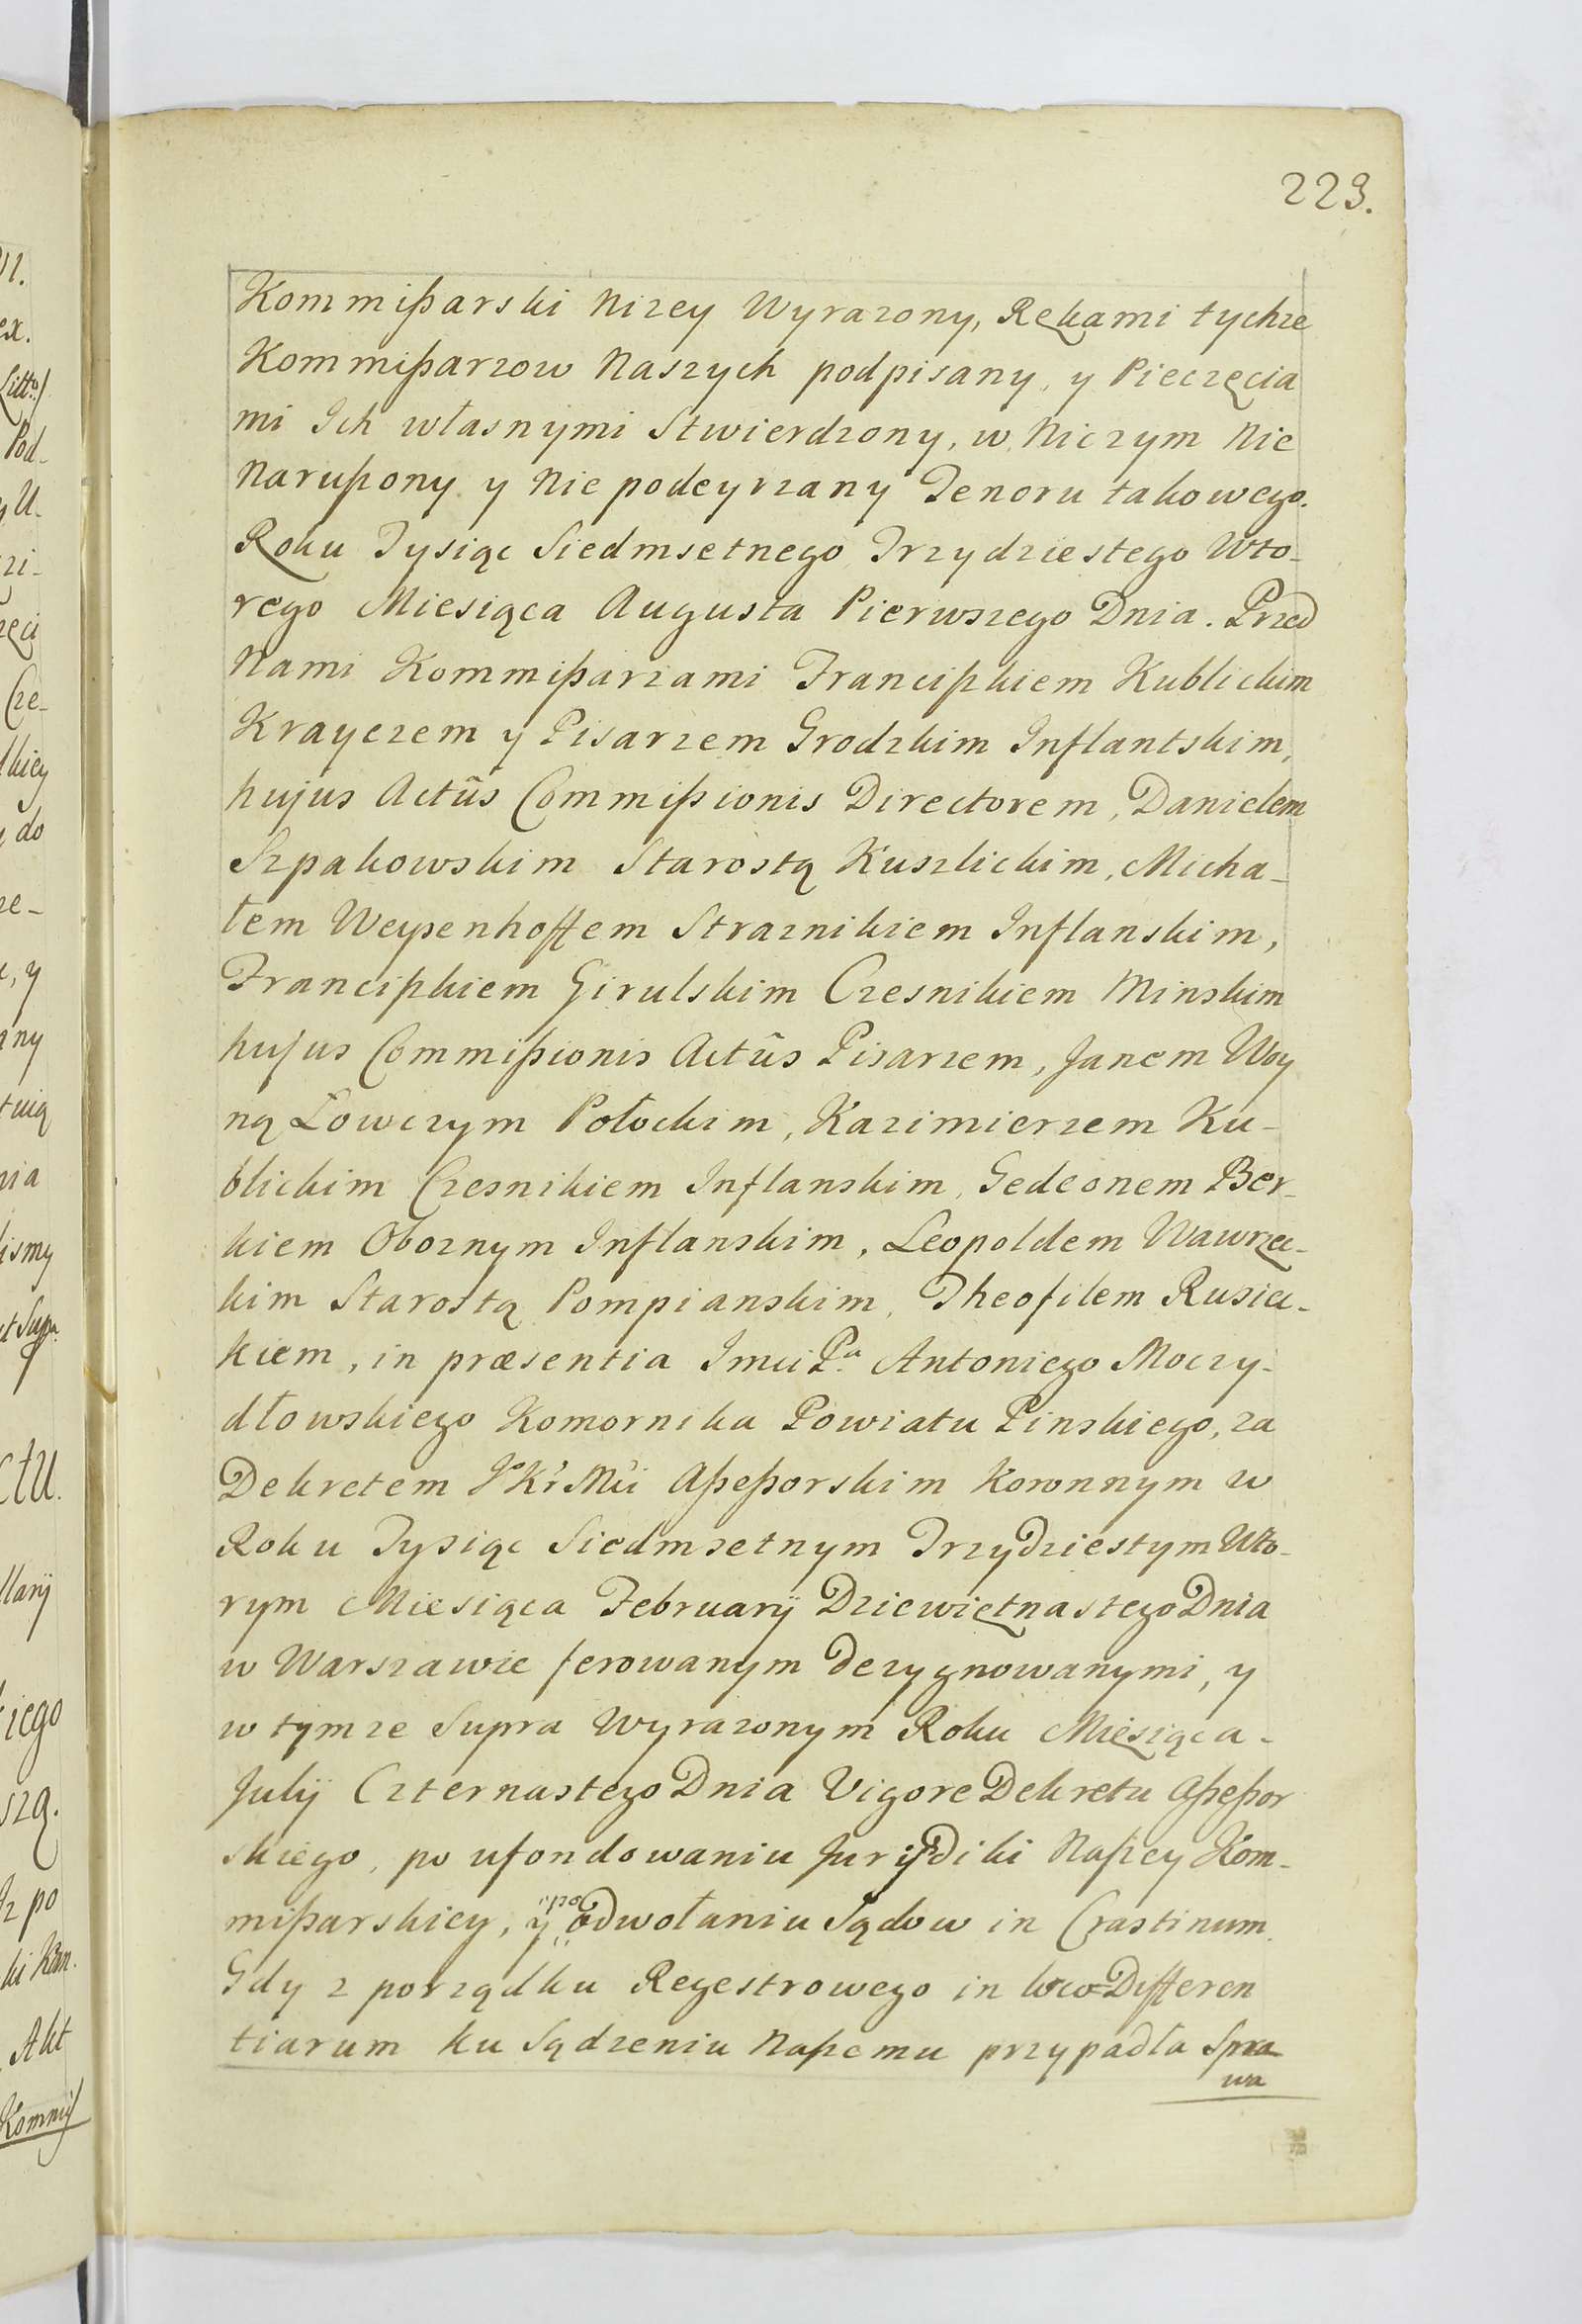 223.
Kommißarski Nizey Wyrazony, Rękami tychze
Kommißarzow Naszych podpisany, y Pieczęcia
mi Ich własnymi Stwierdzony, w Niczym Nie
Narußony y Nie podeyrzany Tenoru takowego.
Roku Tysiąc Siedmsetnego Trzydziestego Wto-
rego Miesiąca Augusta Pierwszego Dnia. Przed
Nami Kommißarzami Francißkiem Kublickim
Krayczem y Pisarzem Grodzkim Inflantskim,
hujus Actûs Commißionis Directorem, Danielem
Szpakowskim Starostą Kuszlickim, Micha-
łem Weysenhoffem Straznikiem Inflanskim,
Francißkiem Girulskim Czesnikiem Minskim
hujus Commißionis Actûs Pisarzem, Janem Woy
ną Łowczym Połockim, Kazimierzem Ku-
blickim Czesnikiem Inflanskim, Gedeonem Ber-
kiem Oboznym Inflanskim, Leopoldem Wawrzec-
kim Starostą Pompianskim, Theofilem Rusiec-
kiem, in præsentia Imci Pa Antoniego Moczy-
dłowskiego Komornika Powiatu Pinskiego, za
Dekretem Jo Kr Mci Aßeßorskim Koronnym w
Roku Tysiąc Siedmsetnym Trzydziestym Wto-
rym Miesiąca Februarij Dziewiętnastego Dnia
w Warszawie ferowanym dezygnowanymi, y
w tymze Supra Wyrazonym Roku Miesiąca-
Julij Czternastego Dnia Vigore Dekretu Aßeßor
skiego, po ufondowaniu Jurydiki Naßey Kom-
mißarskiey, y odwołaniu Sądow in Crastinum.
Gdy z porządku Regestrowego in loco Differen
tiarum ku Sądzeniu Naßemu przypadła Spra-
wa